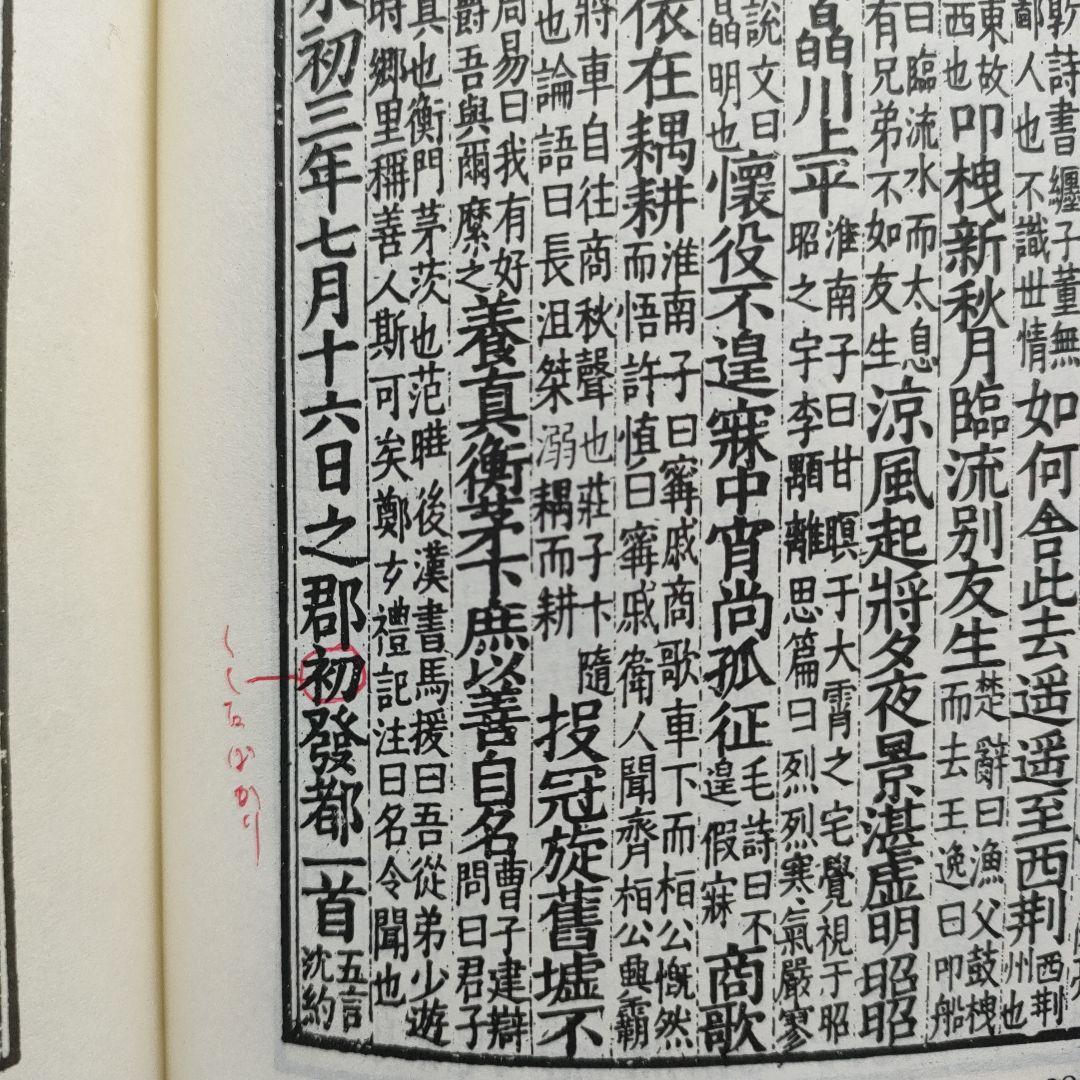 詩書纏子董無
鄙人也不識世情
如何舍此去遥遥至西荆
西荆
州也
東故
西也
叩栧新秋月臨流别友生
楚辭曰漁父鼓栧
而去王逸曰叩船
曰臨流水而太息
有兄弟不如友生
涼風起將夕夜景湛虚明昭昭
皛川上平
淮南子曰甘瞑于大霄之宅覺視于昭
昭之宇李顒離思篇曰烈烈寒氣嚴寥
説文曰
皛明也
懷役不遑寐中宵尚孤征
毛詩曰不
遑假寐
商歌
依在耦耕
淮南子曰甯戚商歌車下而桓公慨然
而悟許慎曰甯戚衛人聞齊桓公興霸
將車自往商秋聲也莊子卞隨
也論語曰長沮桀溺耦而耕
投冠旋舊墟不
周易曰我有好
爵吾與爾縻之
養真衡茅下庶以善自名
曹子建辯
問曰君子
真也衡門茅茨也范曄後漢書馬援曰吾從弟少遊
時鄉里稱善人斯可矣鄭玄禮記注曰名令聞也
永初三年七月十六日之郡初發都一首
五言
沈約
したばかり